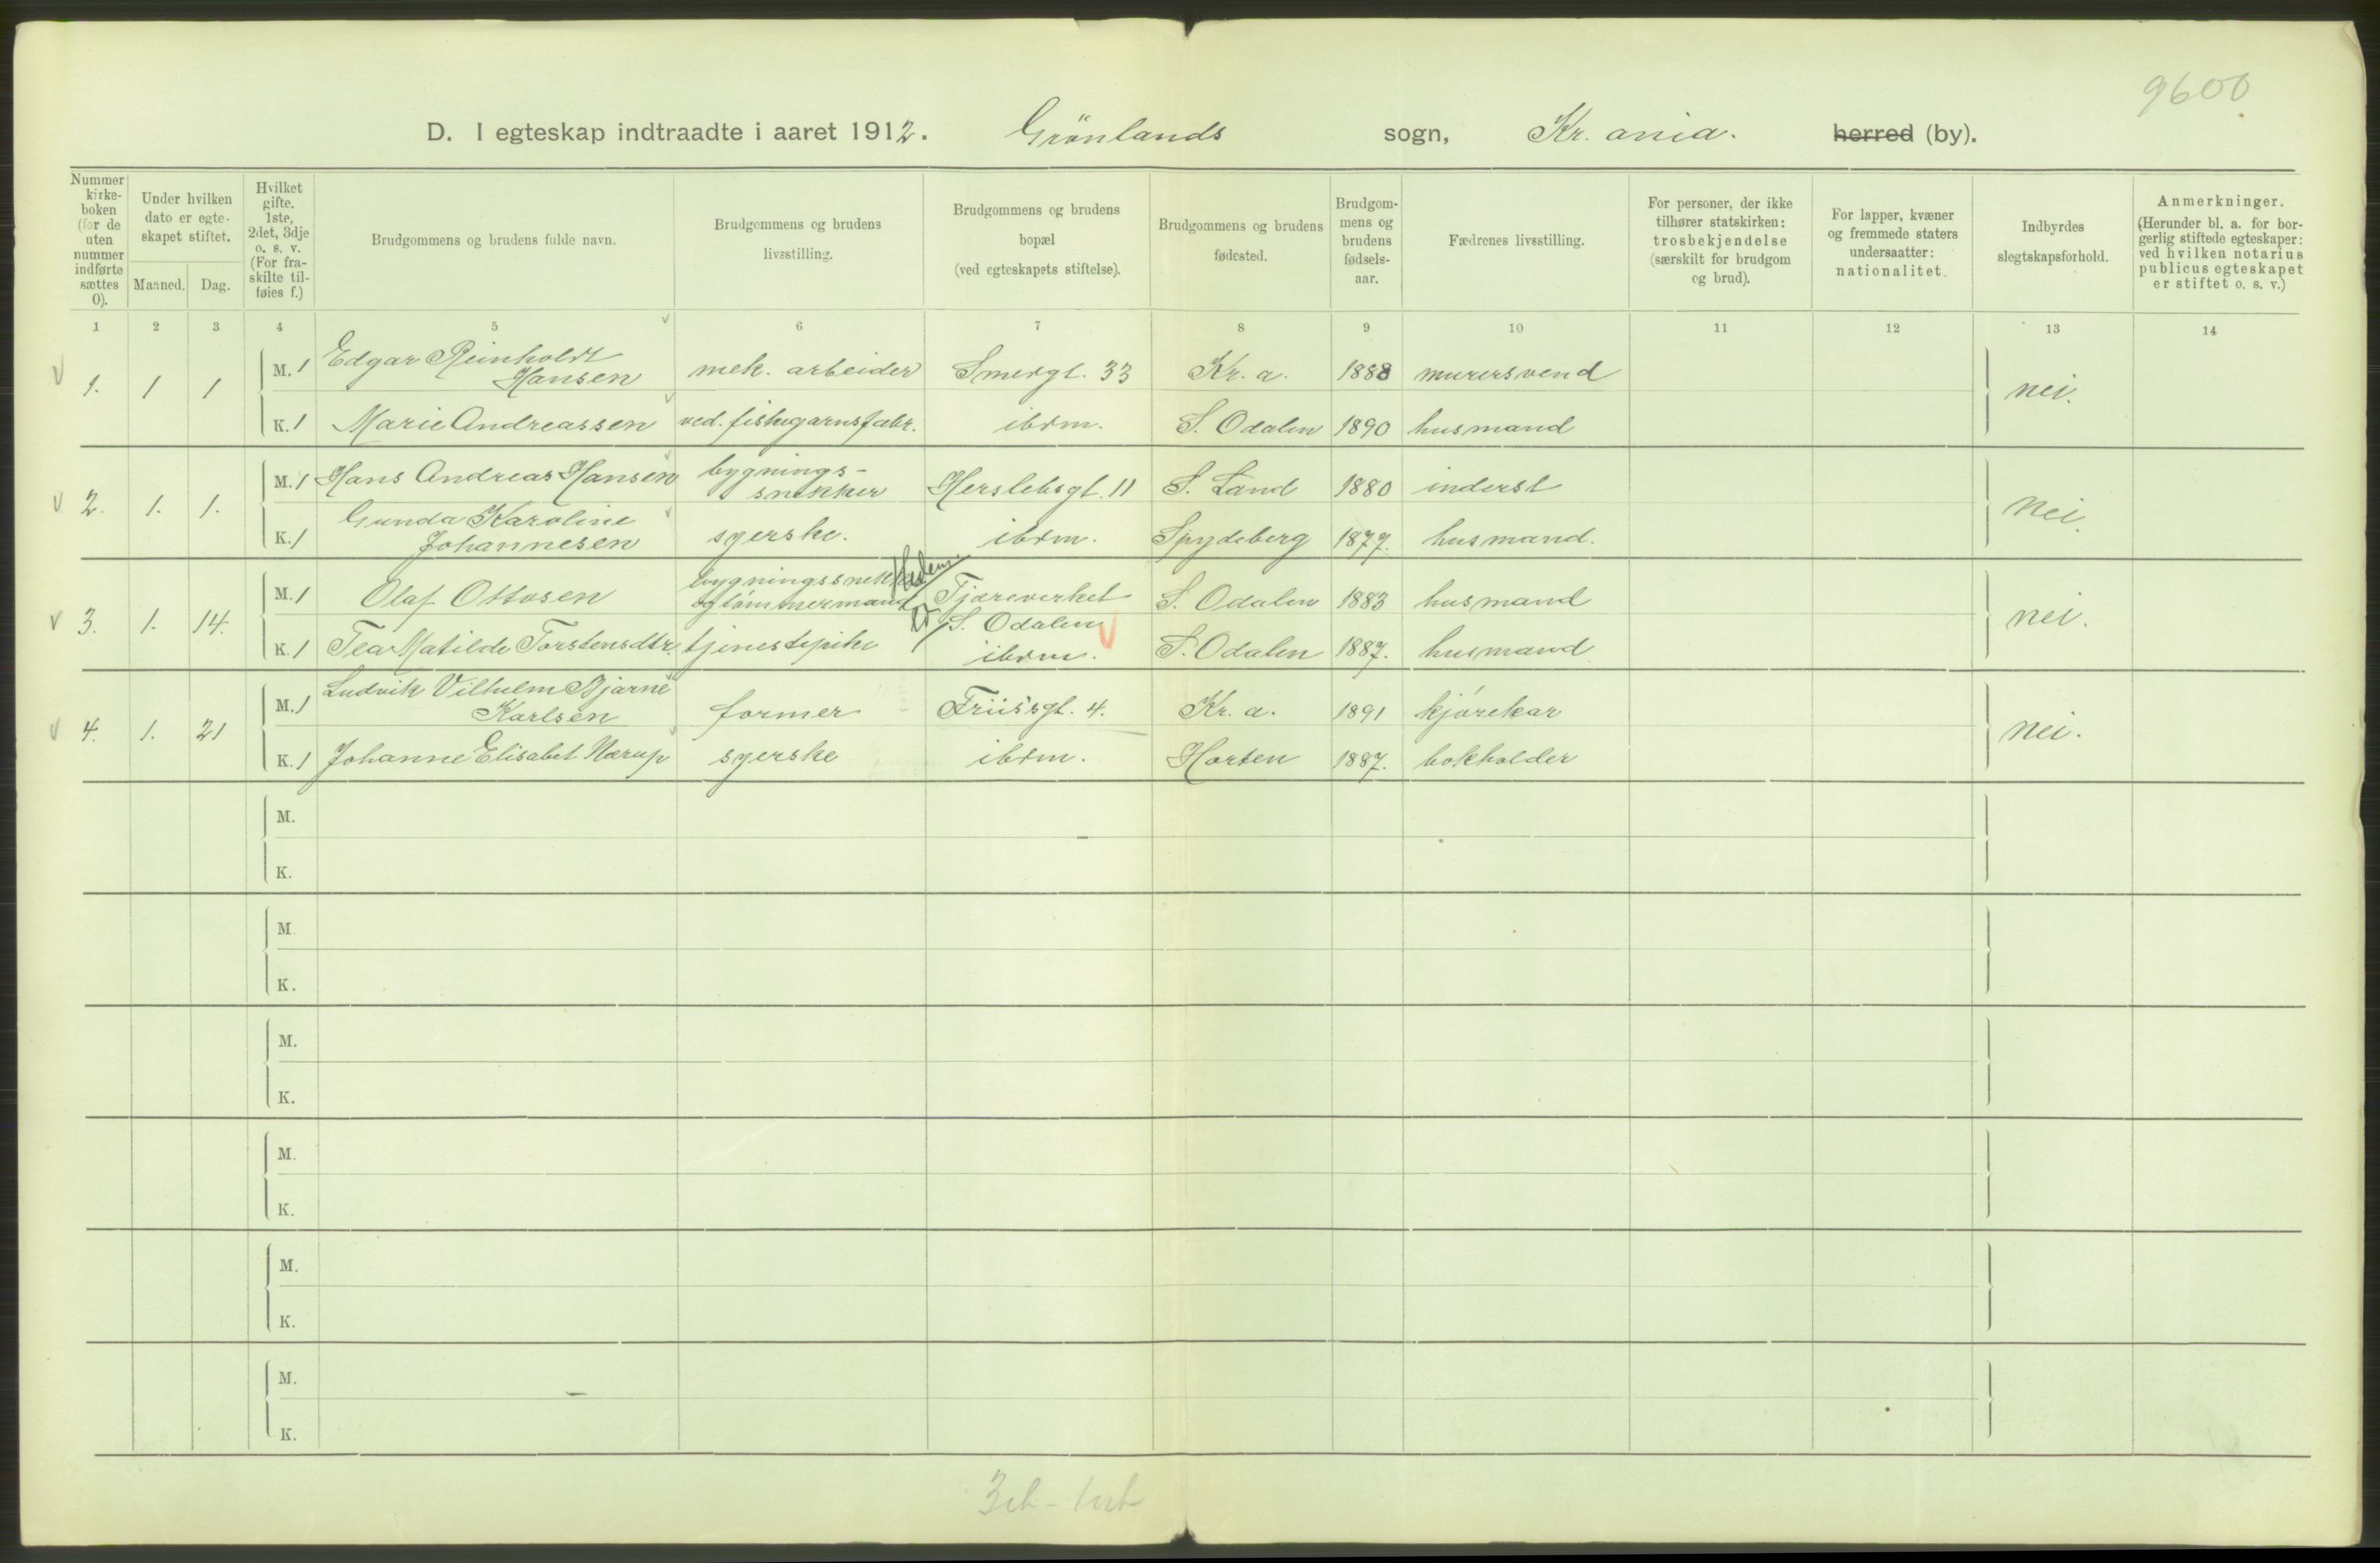 9600
D. I egteskap indtraadte i aaret 1912. Grönlands sogn, Kr. ania. herred (by).
Nummer kirke-boken (for de uten nummer indførte sættes 0).
Under hvilken dato er egte-skapet stiftet.
Maaned. Dag.
Hvilket gifte. 1ste, 2det, 3dje o. s. v. (For fra-skilte til-føies f.)
Brudgommens og brudens fulde navn.
Brudgommens og brudens livsstilling.
Brudgommens og brudens bopæl (ved egteskapets stiftelse).
Brudgommens og brudens fødested.
Brudgom-mens og brudens fødsels-aar.
Fædrenes livsstilling.
For personer, der ikke tilhører statskirken: trosbekjendelse (særskilt for brudgom og brud).
For lapper, kvæner og fremmede staters undersaatter: nationalitet.
Indbyrdes slegtskapsforhold.
Anmerkninger. (Herunder bl. a. for bor-gerlig stiftede egteskaper: ved hvilken notarius publicus egteskapet er stiftet o. s. v.)
1 2 3 4 5 6 7 8 9 10 11 12 13 14
1. 1 1 M. 1 Edgar Reinholdt Hansen mek. arbeider Smergt. 33 Kr. a. 1888 murersvend nei.
K. 1 Marie Andreassen ved. fiskegarnsfabr. ibdm. S. Odalen 1890 husmand
2. 1. 1. M. 1 Hans Andreas Hansen bygnings-snekker Herslebsgt. 11 S. Land 1880 inderst nei.
K. 1 Gunda Karoline Johannesen syerske. ibdm. Spydeberg 1877. husmand.
3. 1. 14. M. 1 Olaf Ottosen bygningssnekker og tömmermand Tjæreverket S. Odalen S. Odalen 1883 husmand nei.
K. 1 Tea Matilde Torstensdtr tjenestepike ibdm. S. Odalen 1887. husmand
4. 1. 21 M. 1 Ludvik Vilhelm Bjarne Karlsen former Friisgt. 4. Kr. a. 1891 kjörekar nei.
K. 1 Johanne Elisabet Nærup syerske ibdm. Horten 1887. bokholder
M.
K.
M.
K.
M.
K.
M.
K.
M.
K.
M.
K.